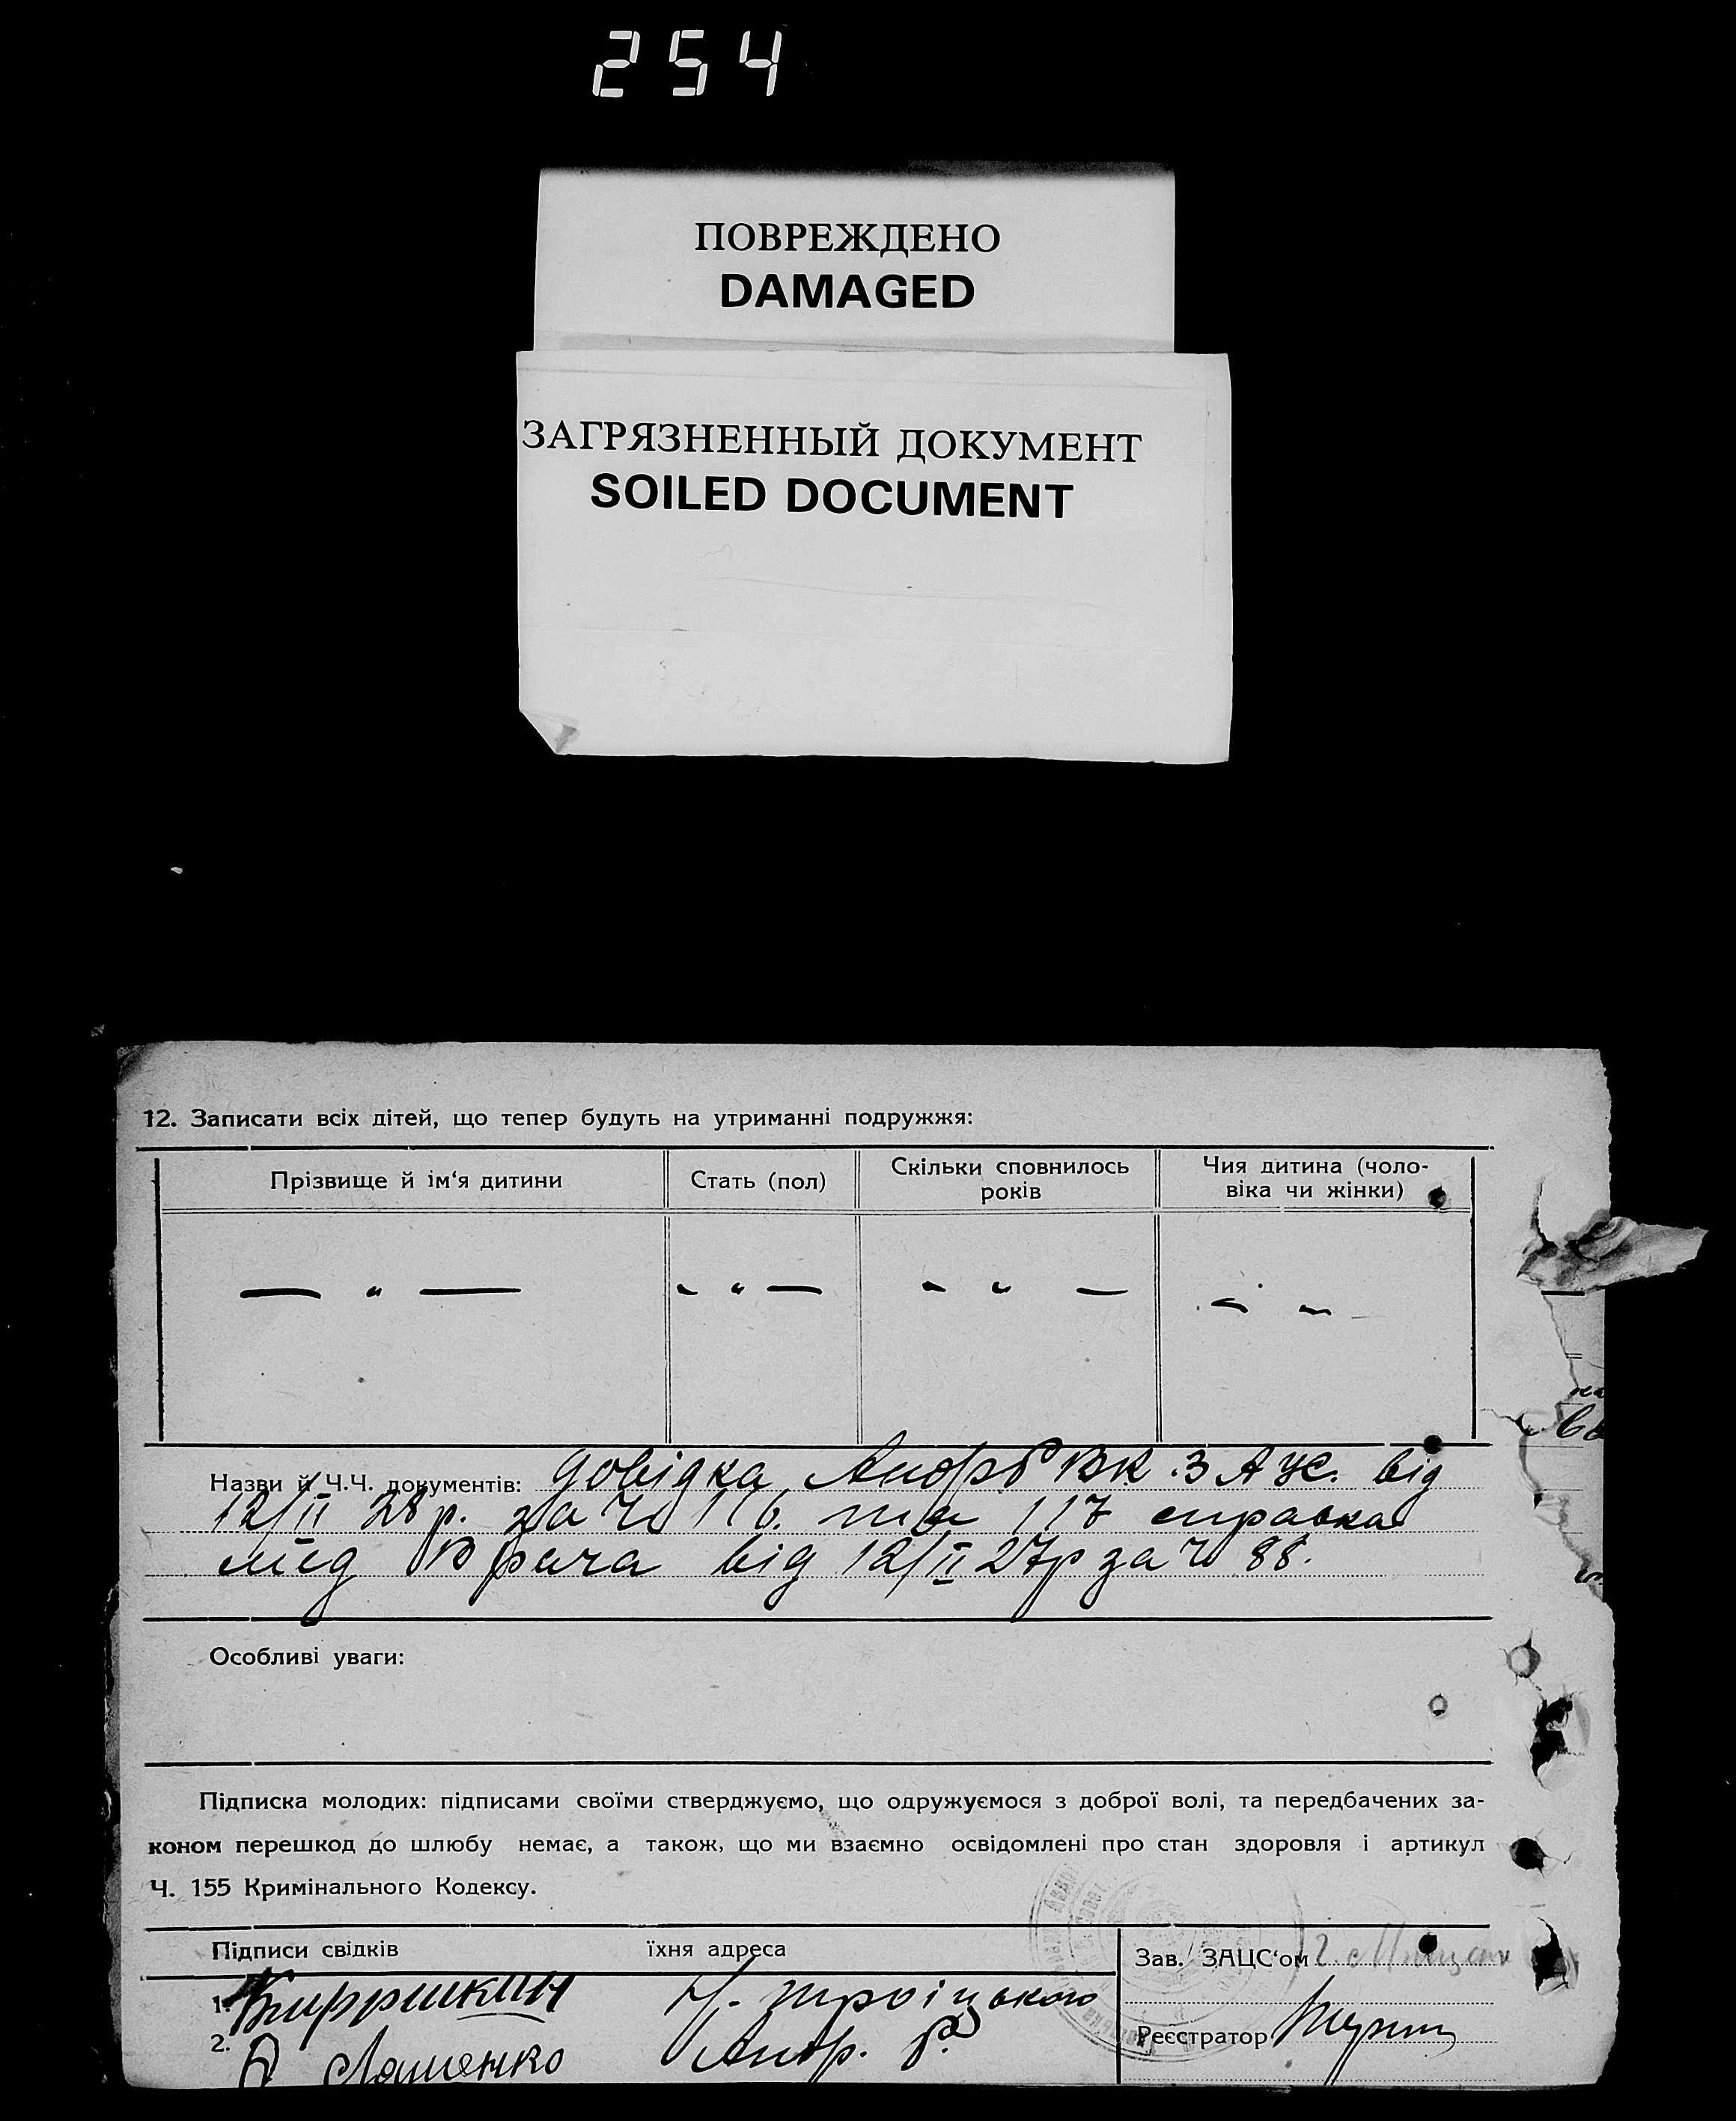 254
ПОВРЕЖДЕНО
DAMAGED
ЗАГРЯЗНЕННЫЙ ДОКУМЕНТ
SOILED DOCUMENT
12. Записати всіх дітей, що тепер будуть на утриманні подружжя:
Прізвище й ім‘я дитини
Стать (пол)
Скільки сповнилось
років
Чия дитина (чоло-
віка чи жінки)
— „ —
- „ —
- „ —
Назви й Ч.Ч. документів: довідка від
12/II 28 р. за Ч 116. та 117 справка
мед Врача від 12/II 27р за Ч 88.
Особливі уваги:
Підписка молодих: підписами своїми стверджуємо, що одружуємося з доброї волі, та передбачених за-
коном перешкод до шлюбу немає, а також, що ми взаємно освідомлені про стан здоровля і артикул
Ч. 155 Кримінального Кодексу.
Підписи свідків
їхня адреса
Зав. ЗАЦС‘ом
1. Н. Троіцького
2. Ляшенко Андр. Р.
Реєстратор